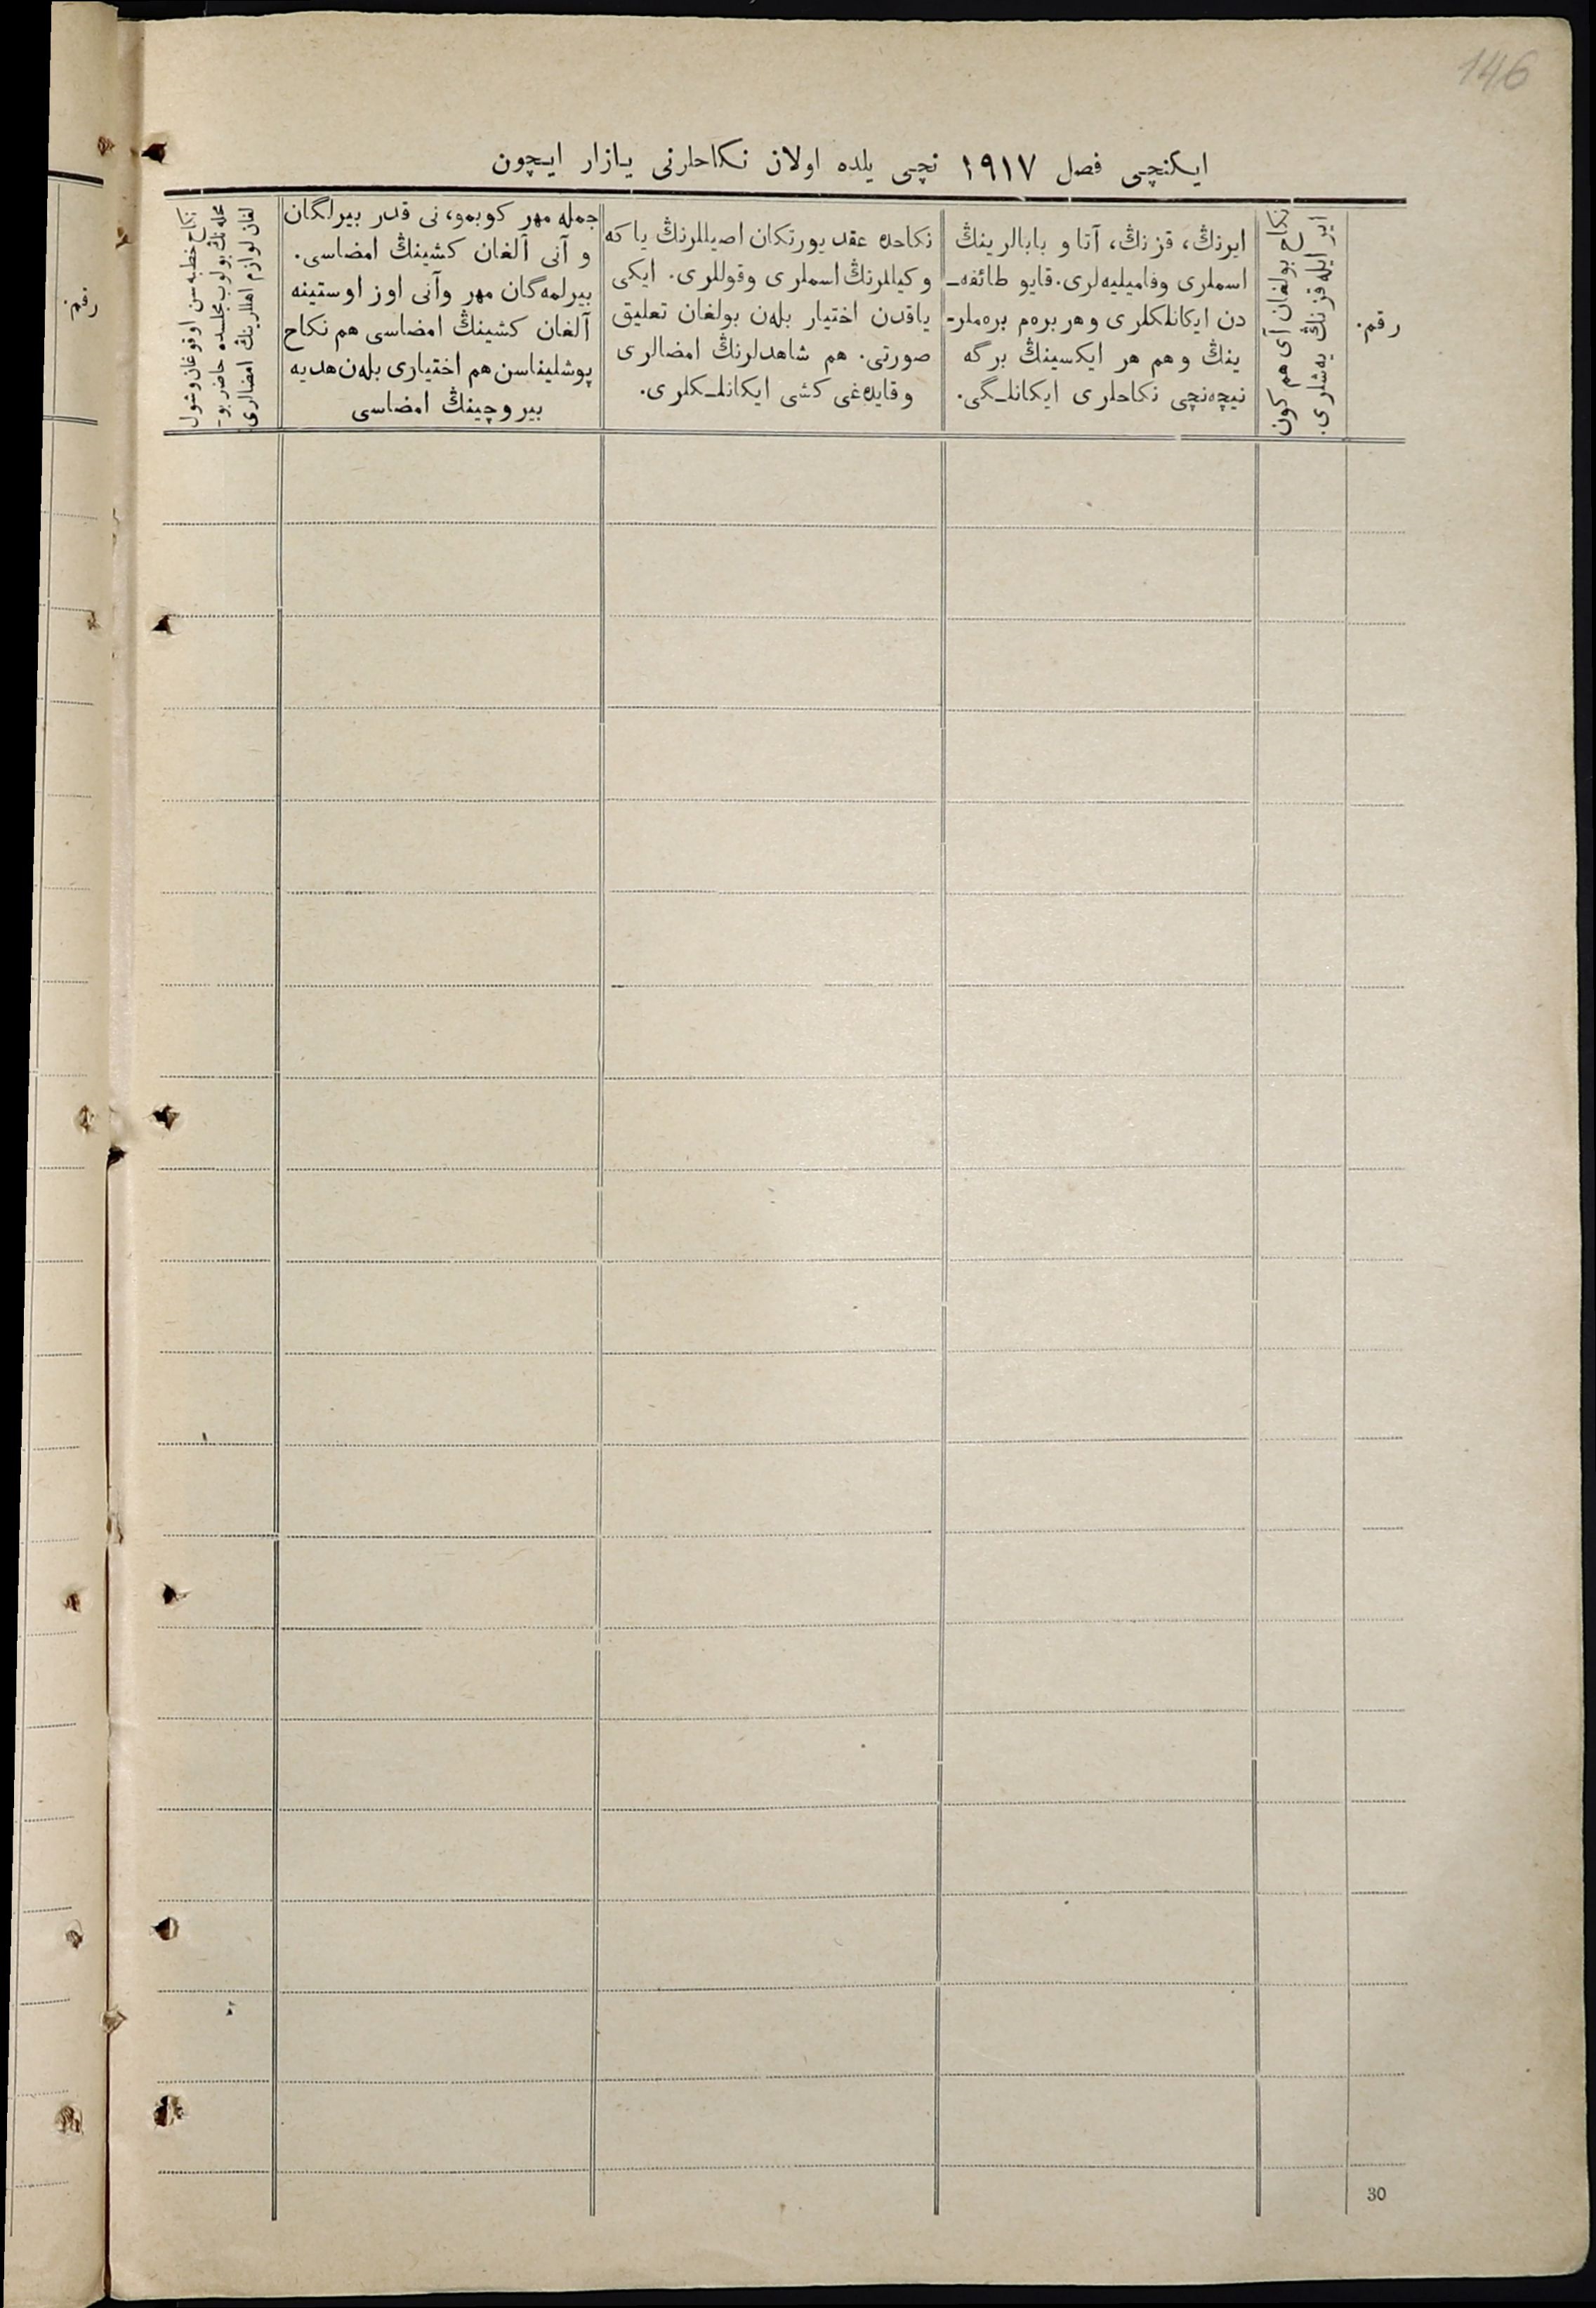 146
ایكنچی فصل ١٩١٧ نچی یلده اولان نكاحلرنی یازار ایچون
رقم.
ایر ایله قزنڭ یه‌شلری.
نكاح بولغان آی هم كون
ایرنڭ، قزنڭ، آتا و بابالرینڭ
اسملری وفامیلیه‌لری. قایو طائفه‌ـ
دن ایكانلكلری وهر بره‌م بره‌ملر-
ینڭ وهم هر ایكسینڭ برگه
نیچه‌نچی نكاحلری ایكانلـگی.
نكاحده عقد یورتكان اصیللرنڭ یا كه
وكیللرنڭ اسملری وقوللری. ایكی
یاقدن اختیار بله‌ن بولغان تعلیق
صورتی. هم شاهدلرنڭ امضالری
وقایده‌غی كشی ایكانلـكلری.
جمله مهر كوبمو، نی قدر بیرلگان
و آنی آلغان كشینڭ امضاسی.
بیرلمه‌گان مهر وآنی اوز اوستینه
آلغان كشینڭ امضاسی هم نكاح
پوشلیناسن هم اختیاری بله‌ن هدیه
بیروچینڭ امضاسی
نكاح خطبه‌سن اوقوغان وشول
محله‌نڭ بولوب مجلسده حاضر بو-
لغان لوازم اهللرینڭ امضالری
رقم.
30